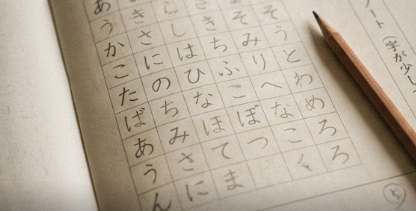 ノート(字が少
そうとわめろろ
そみりへなこく
ちふこぼつ
しはひなほてま
きさにのちみさに
あうかこたばあうん